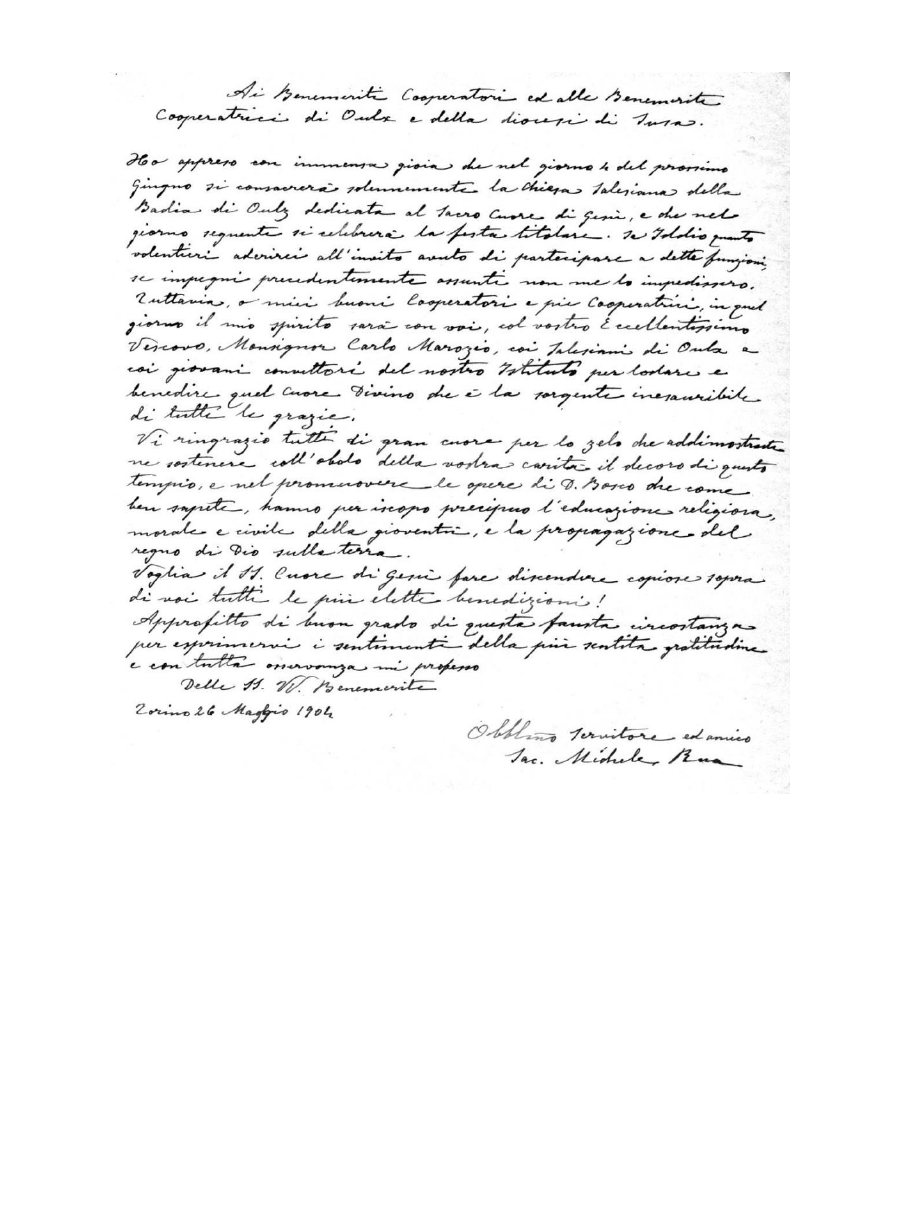 Ai Benemeriti Cooperatori ed alle Benemerite
Cooperatrici di Oulx e della diocesi di Susa.
Ho appreso con immensa gioia che nel giorno 4 del prossimo
Giugno si consacrerà solennemente la Chiesa Salesiana della
Badia di Oulx dedicata al Sacro Cuore di Gesù, e che nel
giorno seguente si celebrerà la festa titolare. Sa Iddio quanto
volentieri aderirei all'invito avuto di partecipare a dette funzioni,
se impegni precedentemente assunti non me lo impedissero.
Tuttavia, o miei buoni Cooperatori e pie Cooperatrici, in quel
giorno il mio spirito sarà con voi, col vostro Eccellentissimo
Vescovo, Monsignor Carlo Marozio, coi Salesiani di Oulx e
coi giovani convittori del nostro Istituto per lodare e
benedire quel Cuore Divino che è la sorgente inesauribile
di tutte le grazie.
Vi ringrazio tutti di gran cuore per lo zelo che addimostrate
ne sostenere coll'obolo della vostra carità il decoro di questo
tempio, e nel promuovere le opere di D. Bosco che come
ben sapete, hanno per iscopo precipuo l'educazione religiosa,
morale e civile della gioventù, e la propagazione del
regno di Dio sulla terra.
Voglia il SS. Cuore di Gesù fare discendere copiose sopra
di voi tutti le più elette benedizioni!
Approfitto di buon grado di questa fausta circostanza
per esprimervi i sentimenti della più sentita gratitudine
e con tutta osservanza mi professo
Delle SS. VV. Benemerite
Torino 26 Maggio 1904
Obbl.mo Servitore ed amico
Sac. Michele Rua